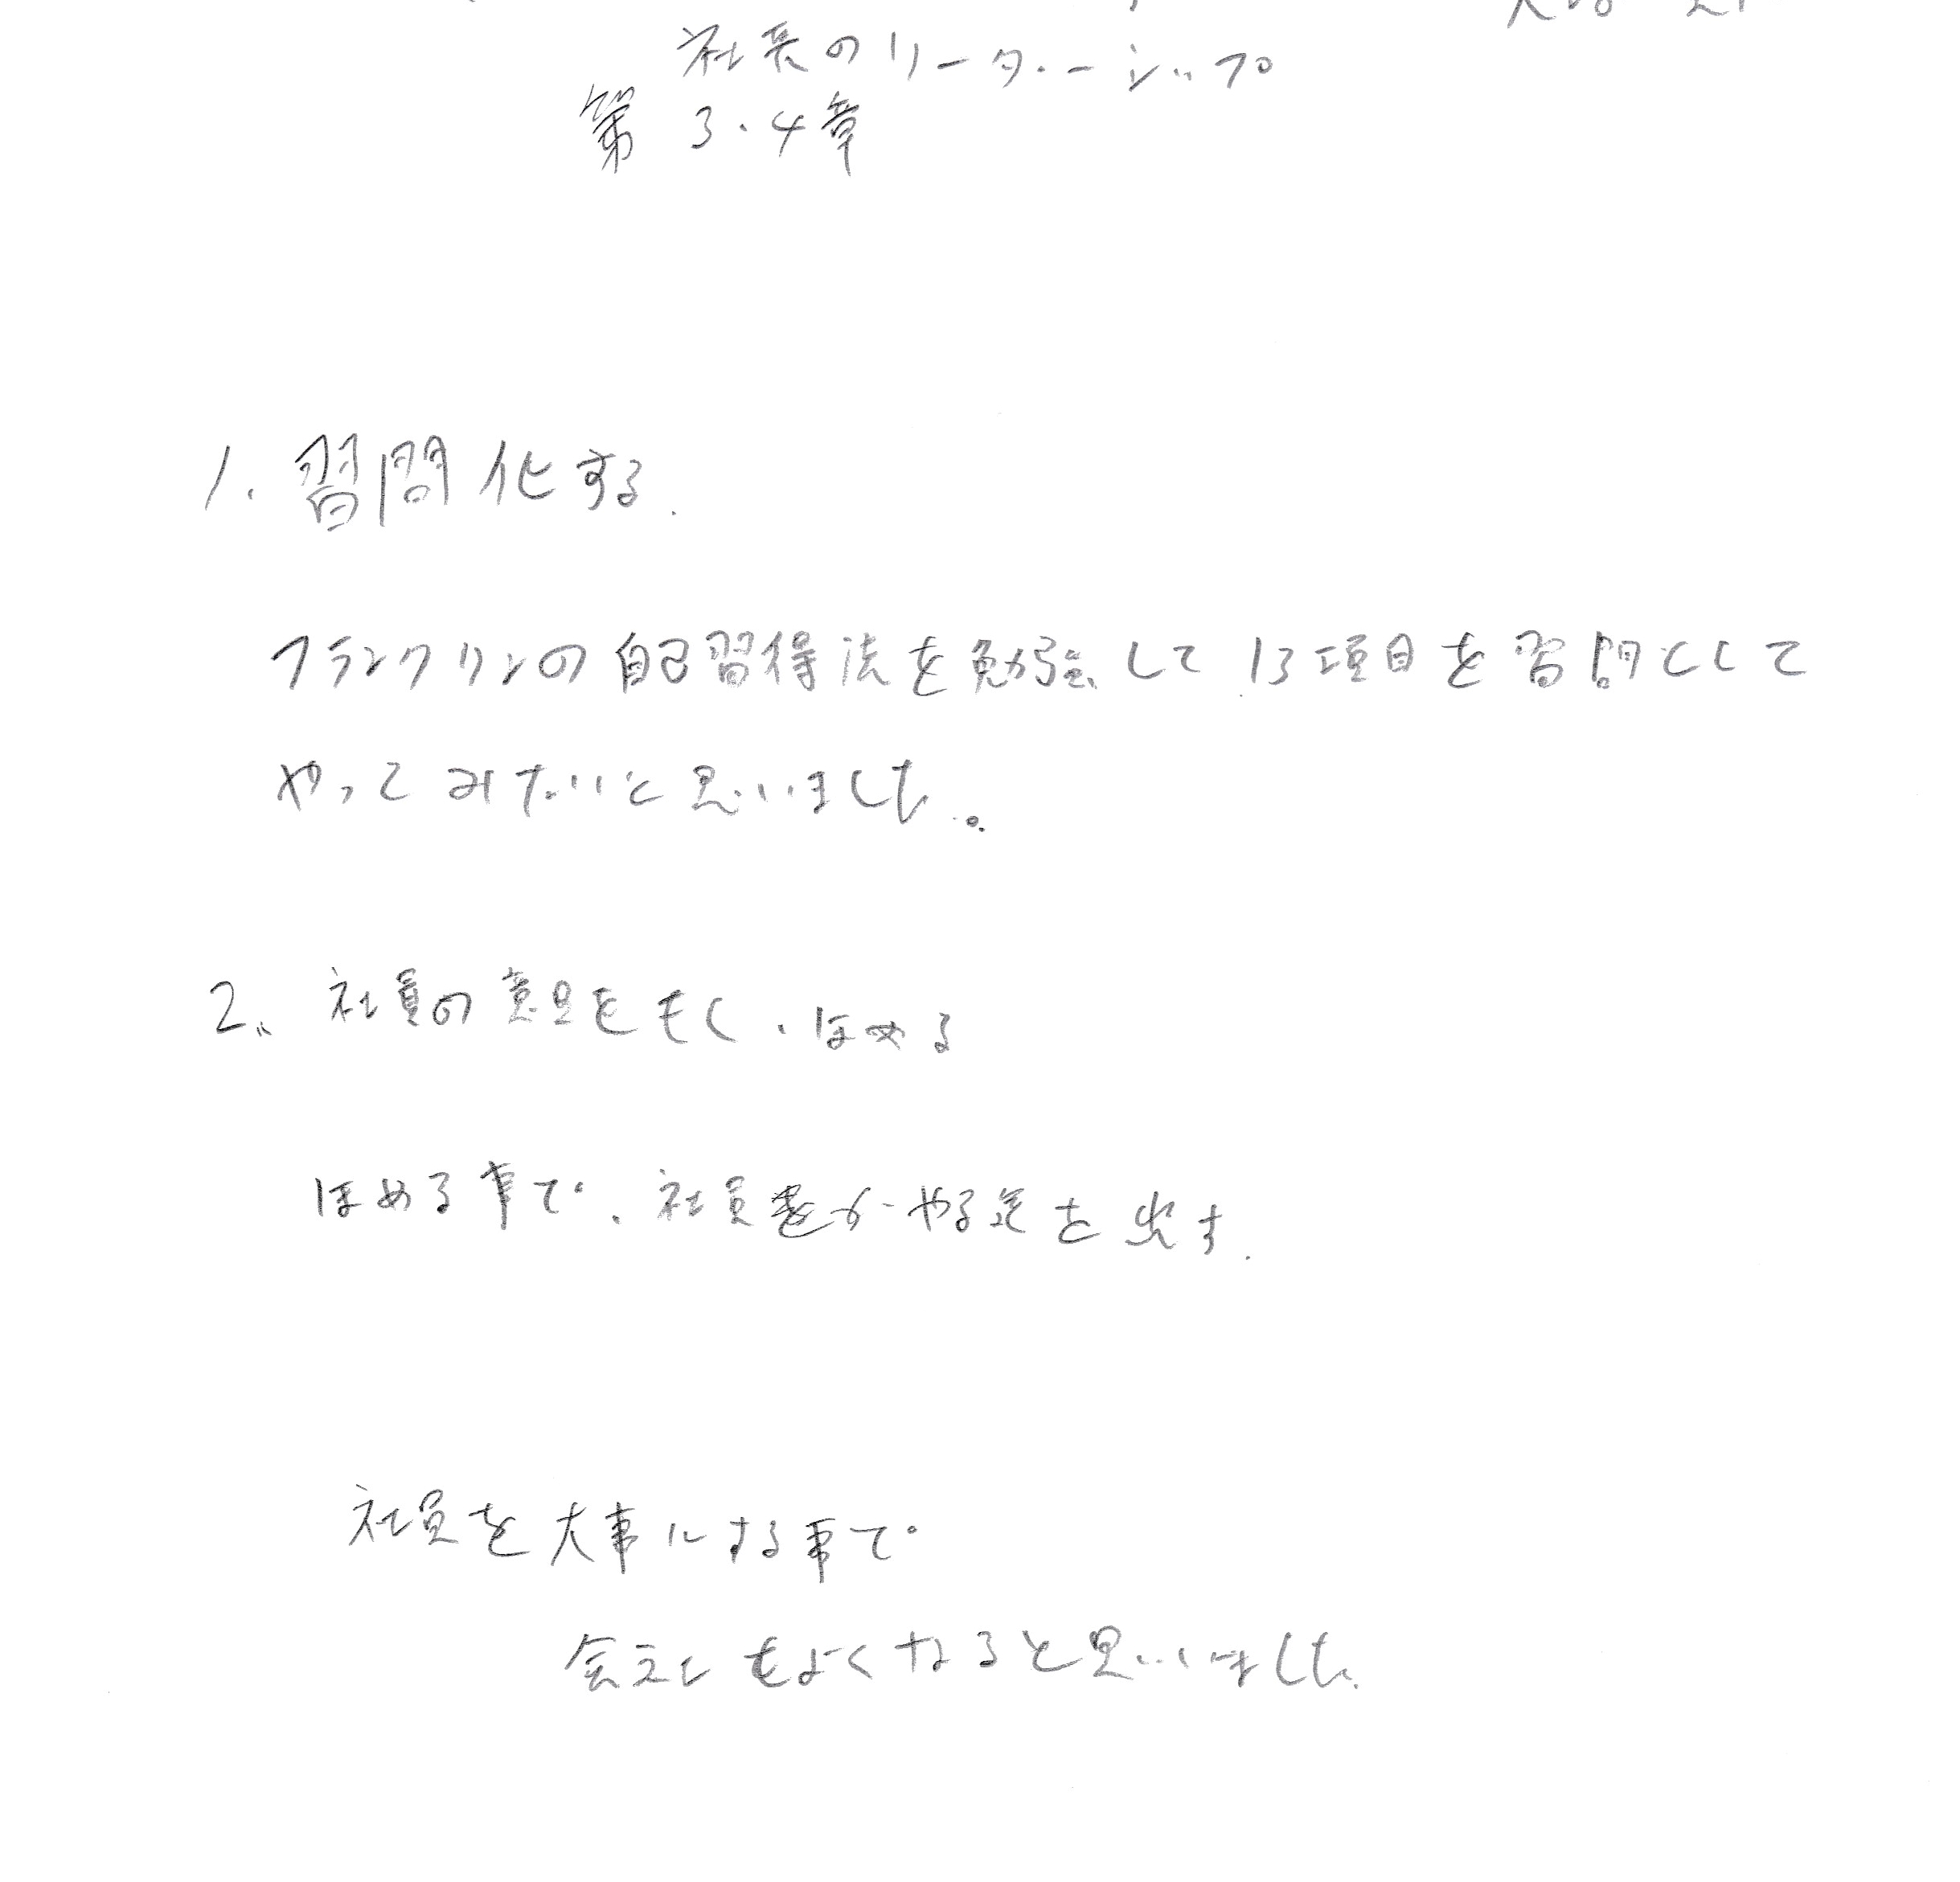 社長のリーダーシップ
第3・4章
1. 習間化する.
フランクリンの自己習得法を勉強して13項目を習間として
やってみたいと思いました。
2. 社員の意見をもく、ほめる
ほめる事で、社員がやる気を出す.
社員を大事にする事で
会社もよくなると思いました.